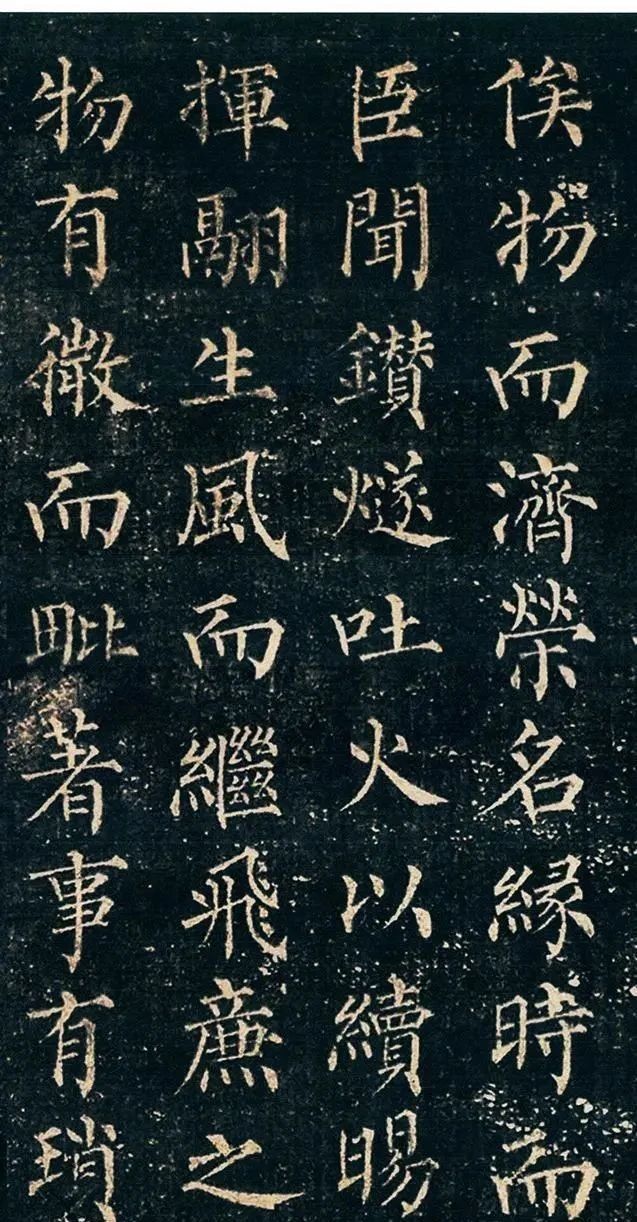 俟物而濟榮名緣時而
臣聞鑚燧吐火以續暘
揮翮生風而繼飛廉之
物有微而毗著事有瑣